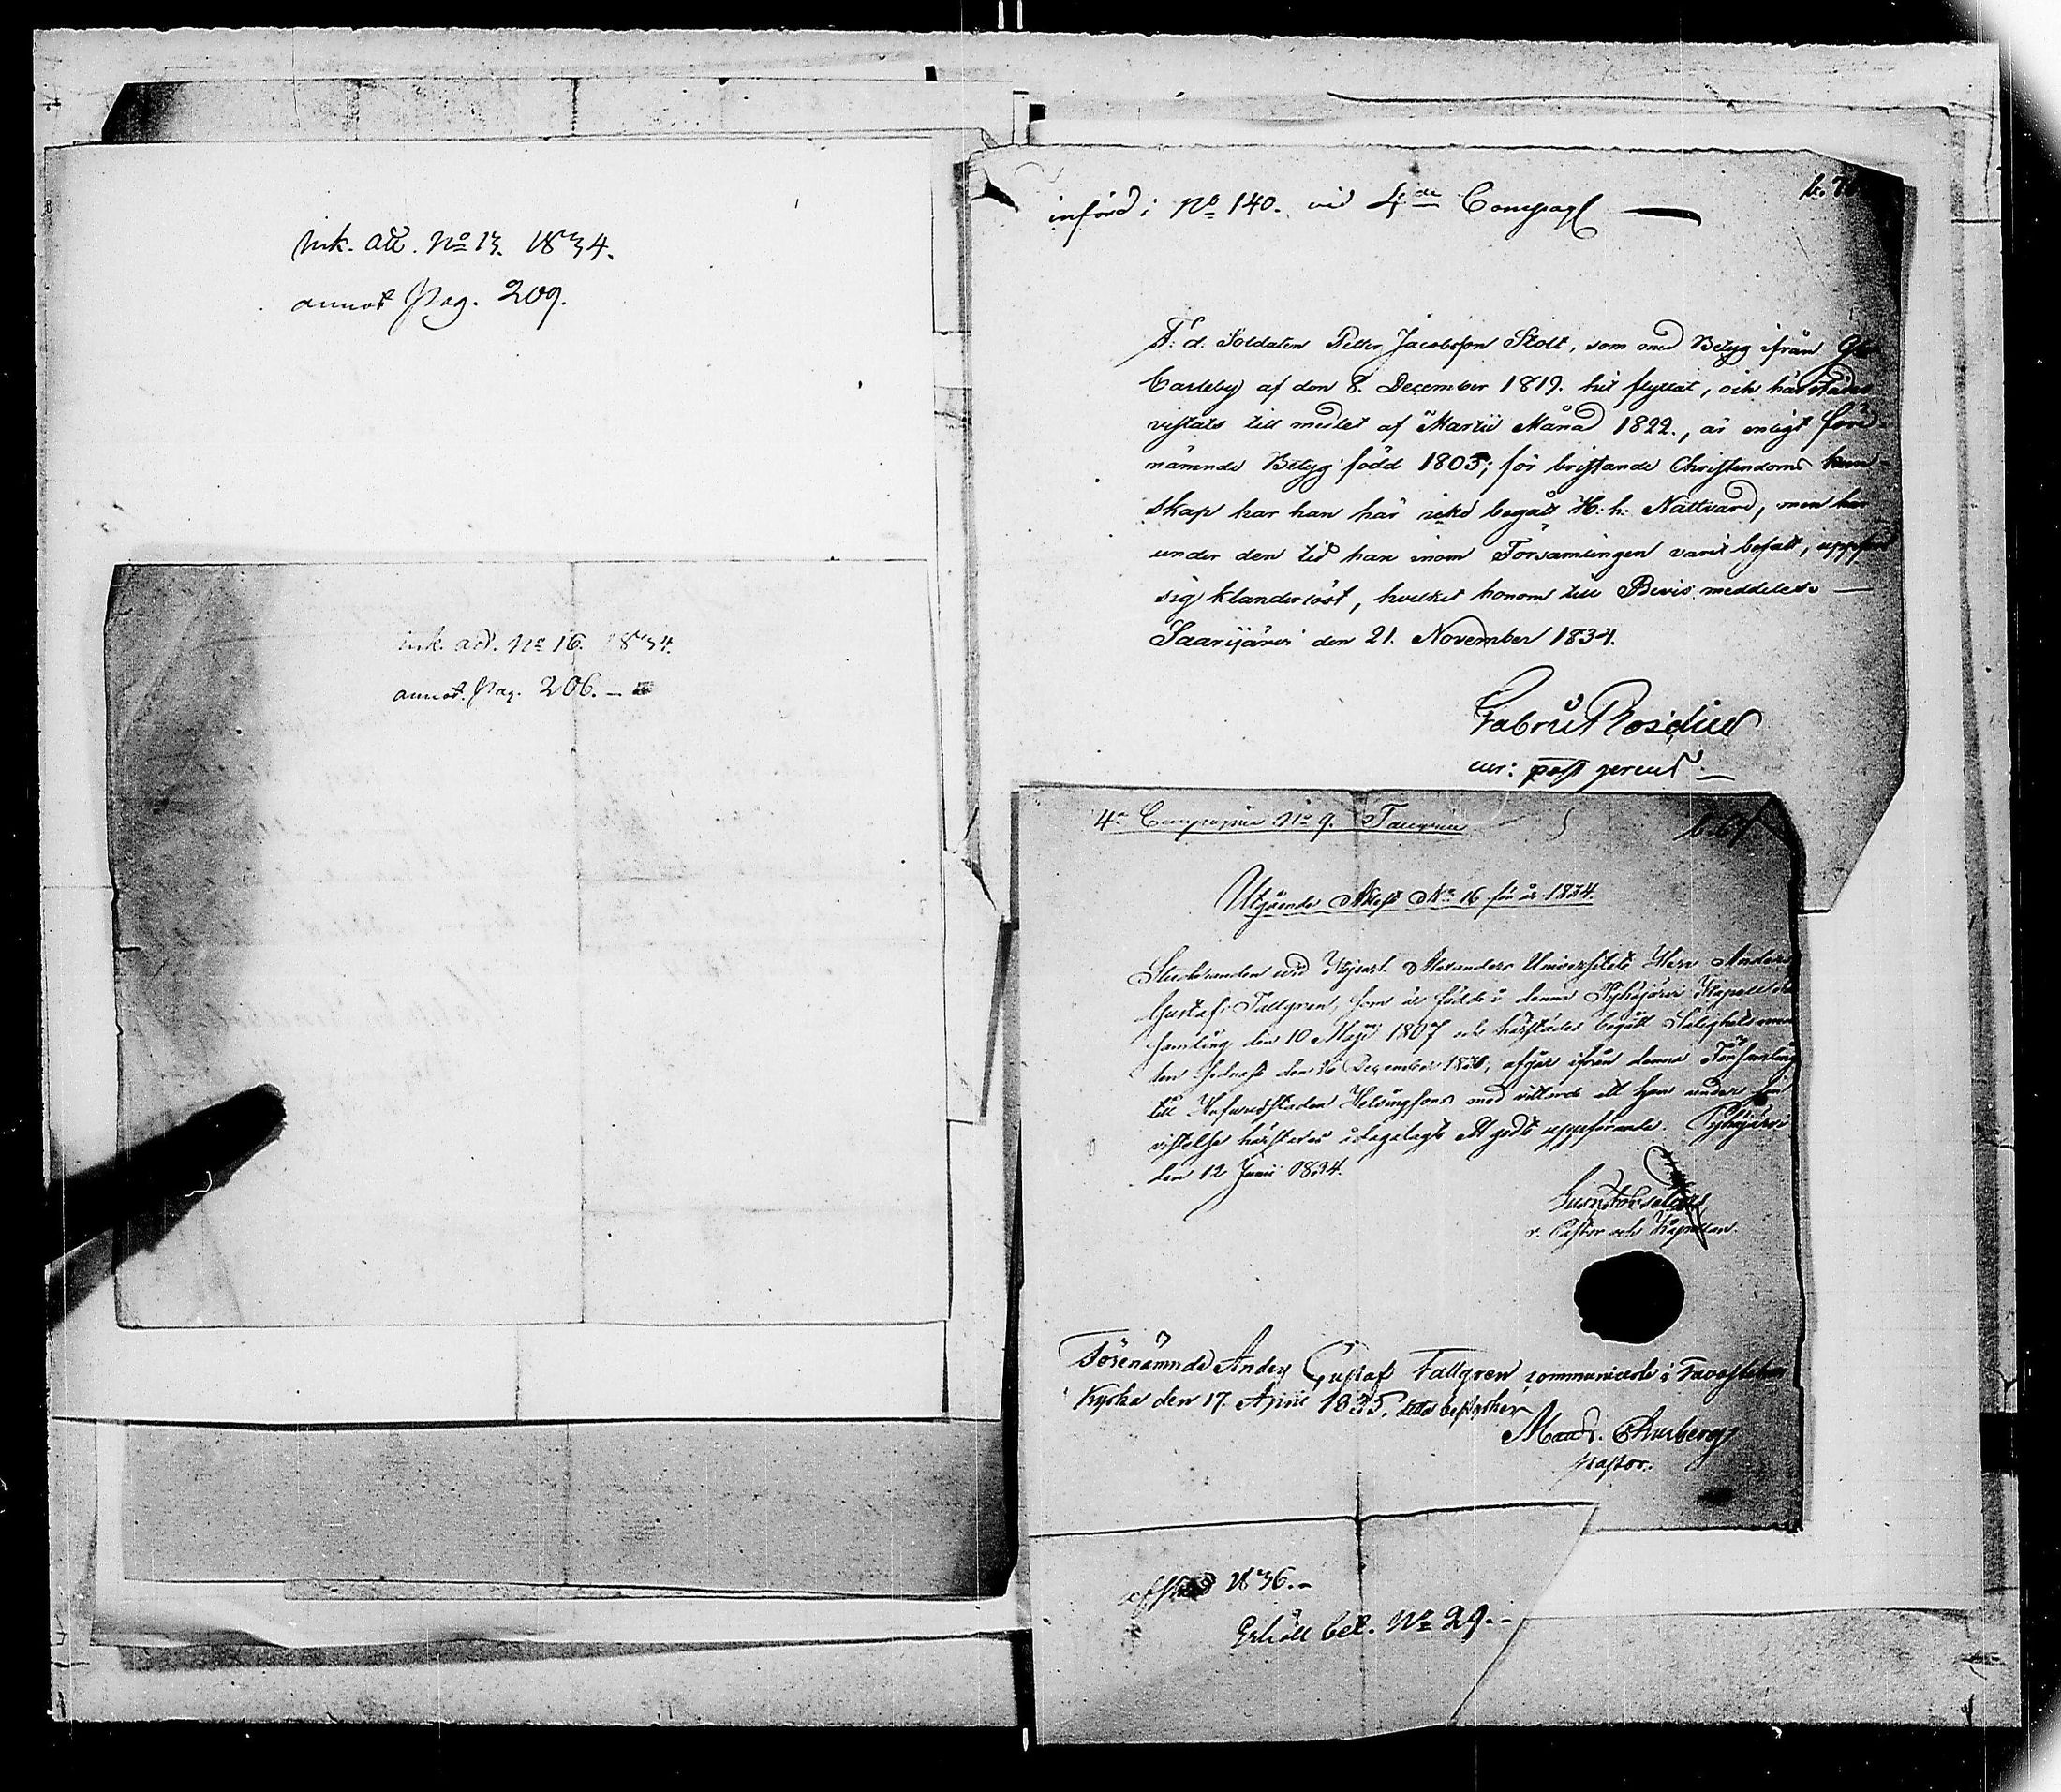 ink. att. No 13. 1834.
annot Pag. 209.
ink. att. No 16. 1834.
annot. Pag. 206. –
införd i No 140. vid 4de Compagl —
F: d. Soldaten Petter Jacobsson Stolt, som med Betyg ifrån
Carleby af den 8. December 1819. hit flyttat, och härstädes
vistats till medlet af Martii Månad 1822., är enligt före-
nämnde Betyg född 1803; för bristande Christendoms kun-
skap har han här icke begått H: h: Nattvard, men har
under den tid han inom Församlingen varit besatt, uppfört
sig klanderlöst, hvilket honom till Bevis meddelas. —
Saarijärvi den 21. November 1834.
Gabriel Roselius
cur: past gerens. —
4e Compagnie No 9. Tallgren
Utgående Attest No 16 för år 1834.
Studeranden vid Kejserl. Alexanders Universitetet Herr Anders
Gustaf Tallgren, som är född i denna Pyhäjärvi Kapell
samling den 10 Maji 1807 och härstädes begått Salighets
ten sednast den 26 December 1830, afgår ifrån denna Församling
till Hufvudstaden Helsingfors med vittnesb. att han under sin
vistelse härstädes ådagalagt Ett godt uppförande. Pyhäjärvi
den 12 Junii 1834.
v. Pastor och Kapellan.
Förenämnde Anders Gustaf Tallgren communicerde i Tavastehus
Kyrka den 17. April 1835, detta bestyrker
Pastor.
afsked 1836. –
Erhöll bet. No 29. –